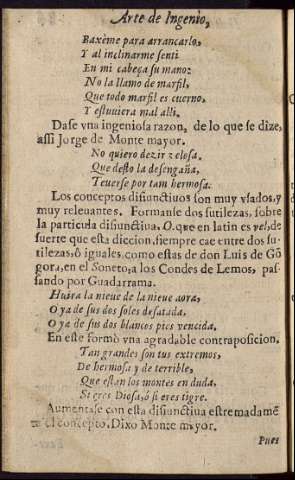 Arte de Ingenio,
Baxème para arrancarlo,
Y al inclinarme senti
En mi cabeça su mano:
No la llamo de marfil,
Que todo marfil es cuerno,
Y estuuiera mal alli,
Dase vna ingeniosa razon, de lo que se dize,
assi Jorge de Monte mayor.
No quiero dezir zelosa,
Que desto la desengaña,
Teuerse por tam hermosa.
Los conceptos disiunctiuos son muy vsados, y
muy releuantes. Formanse dos sutilezas, sobre
la particula disiunctiua. O. que en latin es vel, de
suerte que esta diccion, siempre cae entre dos su-
tilezas, ò iguales, como estas de don Luis de Gõ
gora, en el Soneto, a los Condes de Lemos, pas-
sando por Guadarrama.
la nieue de la nieue aora,
O ya de sus dos soles desatada,
O ya de sus dos blancos pies vencida,
En este formò vna agradable contraposicion.
Tan grandes son tus extremos,
De hermosa y de terrible,
Que estan los montes en duda,
Si eres Diosa, ò si eres tigre.
Aumentase con esta disiunctiua estremadamẽ
te el concepto. Dixo Monte mayor.
Pues